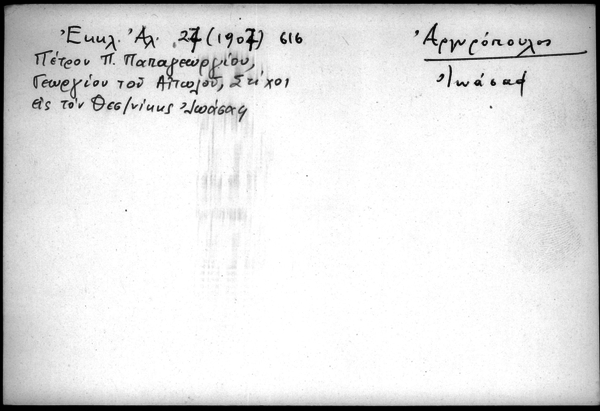 Ἐκκλ. Ἀλ. 27 (1907) 616
Πέτρου Π. Παπαγεωργίου,
Γεωργίου τοῦ Αἰτωλοῦ, Στίχοι
εἰς τὸν Θεσ/νίκης Ἰωάσαφ
Ἀργυρόπουλος
Ἰωάσαφ